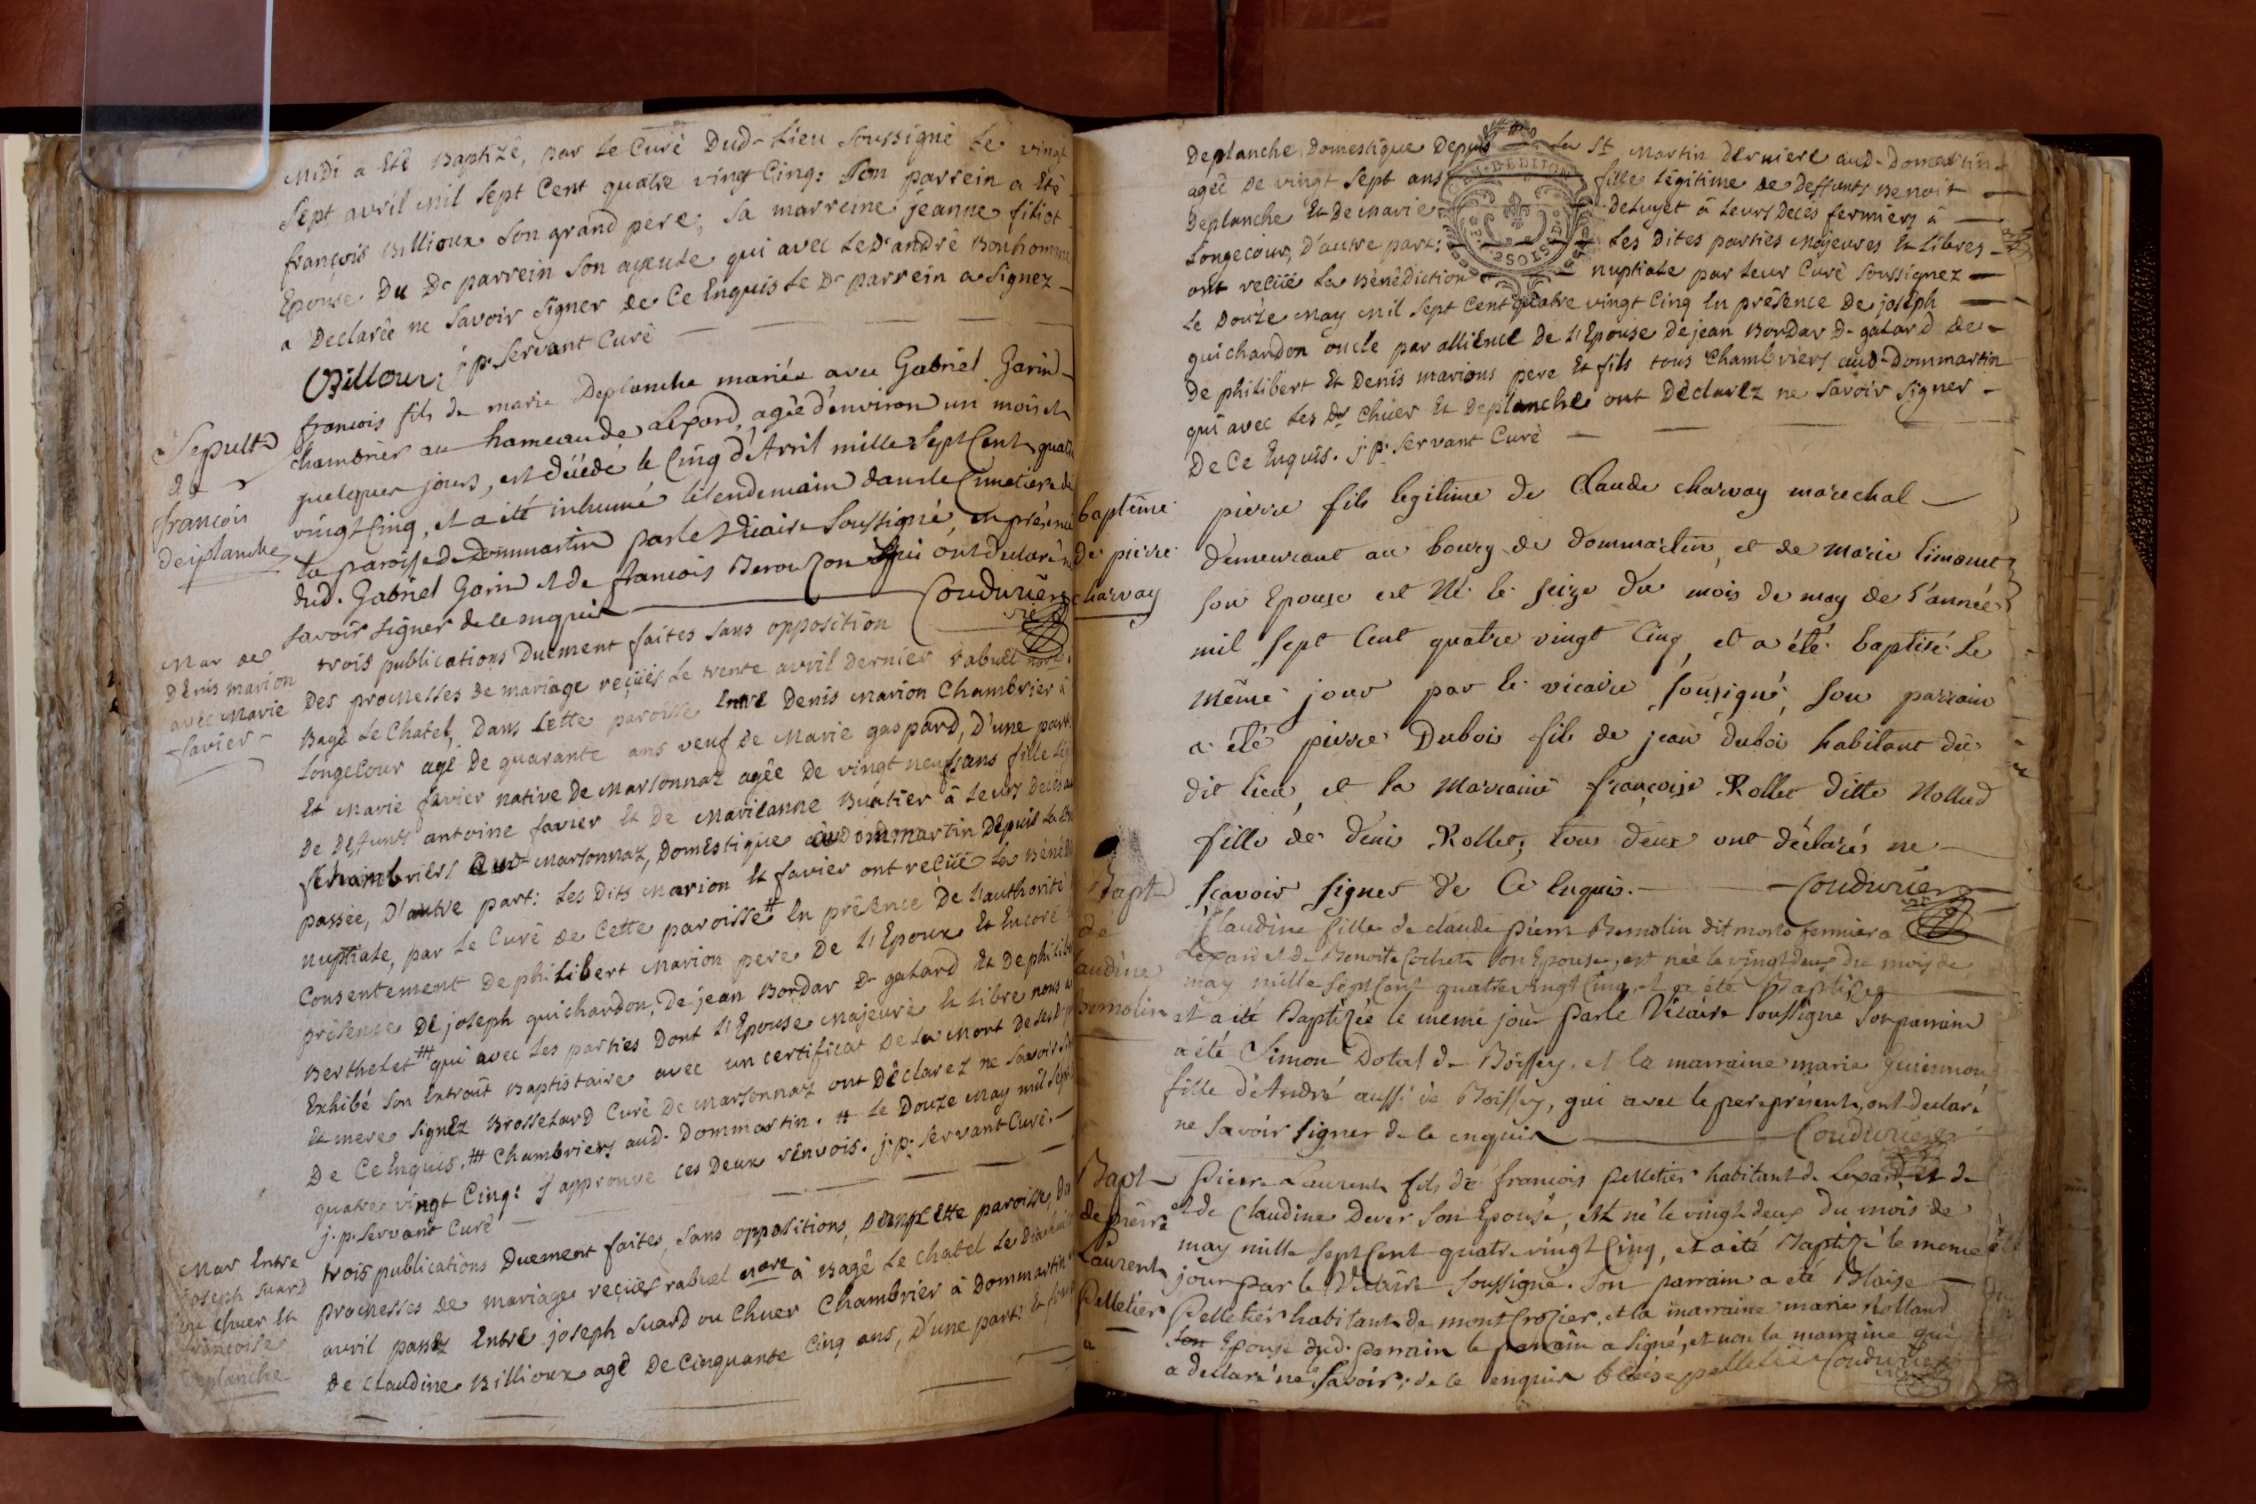 midi a Eté Baptizé, par Le Curé Dud. Lieu soussigné Le vingt
sept avril mil sept Cent quatre vingt Cinq: son parrein a Eté
françois Billioux son grand pere; sa marreine jeanne filiot
Epouse Du Dt parrein son ayeule qui avec Le Dt andré Bonhomme
a Declarée ne savoir signer de Ce Enquis Le Dt parrein a signez
Billoux j. p. servant Curé
Sepult
de
francois
Deplanche
francois fils de marie Deplanche mariée avec Gabriel Garin
chambrier au hameau de Lépard, agée d'environ un mois et
quelques jours, est décédé le Cinq d'Avril mille sept Cent quatre
vingt Cinq, et a été inhumé le lendemain dans le Cimetiere de
la paroisse de Dommartin par le Vicaire soussigné, en présence
dud. Gabriel Garin et de francois Berouzon qui ont declaré ne
savoir signer de ce enquis Couduriér
vic
Mar de
Denis marion
avec marie
favier
trois publications Duement faites sans opposition
Des promesses de mariage reçües Le trente avril Dernier rabuel nore
Bagé Le Chatel, Dans Cette paroisse Entre Denis Marion Chambrier à
Longecour agé De quarante ans veuf de Marie gaspard, D'une part
Et Marie favier native De Marsonnaz agée De vingt neuf ans fille
De Deffunts antoine favier Et De Marieanne Buatier à Leurs Decès
Chambriers aud. Marsonnaz, Domestique à Dommartin Depuis La
passée, D'autre part: Les Dits Marion Et favier ont reçüe La Béné
nuptiale, par Le Curé de Cette paroisse # En présence De L'authorité
Consentement De philibert Marion pere De L'Epoux Et Encore
présence De joseph guichardon, De jean Bordar Dt galard Et De philibe
Berthelet ## qui avec Les parties Dont L'Epouse Majeure Et Libre nous
Exhibé son Extrait Baptistaire avec un certificat De La Mort De ses
Et mere signéz Brosselard Curé De Marsonnaz ont Déclarez ne savoir
De Ce Enquis. ## Chambriers aud. Dommartin. # Le Douze May mil sept
quatre vingt Cinq: j'approuve ces Deux renvois. j: p: servant Curé.
j. p. servant Curé
Mar Entre
joseph suard
ou chuer Et
françoise
Deplanche
trois publications Duement faites, sans oppositions, Dans Cette paroisse, Des
promesses de mariage reçües rabuel nore à Bagé Le Chatel Le
avril passé Entre joseph suard ou Chuer Chambrier à Dommartin
De Claudine Billioux agé De Cinquante Cinq ans, D'une part: Et
Deplanche Domestique Depuis La St Martin Derniere aud. Dommartin
agée De vingt sept ans fille Légitime De Deffunts Benoit
Deplanche Et De Marie Deluyet à Leurs Decès fermiers à
Longecour, D'autre part: Les Dites parties Majeures Et Libres
ont reçüe La Bénédiction nuptiale par Leur Curé soussignez
Le Douze May mil sept Cent quatre vingt Cinq En présence De joseph
guichardon oncle par allience De L'Epouse De jean Bordar Dt galard De
De philibert Et Denis marions pere Et fils tous Chambriers aud. Dommartin
qui avec Les Dts chuer Et Deplanche ont Déclarez ne savoir signer
De Ce Enquis. j: p: servant Curé
baptême
de pierre
charvay
pierre fils legitime de Claude charvay marechal
demeurant au bourg de dommartin, et de Marie Limonet
son Epouse est Né le seize du mois de may de l'année
mil sept Cent quatre vingt Cinq, et a été baptisé le
même jour par le vicaire soussigné, son parrain
a été pierre Dubois fils de jean dubois habitant du
dit lieu, et la Marraine françoise Rollet ditte Nollud
fille de denis Rollet, tous deux ont déclarés ne
sçavoir signer de Ce Enquis. Couduriér
vic
Bapt
de
audine
Bemolin
Claudine fille de claude pierre Bemolin dit morlo fermier a
Lépard et de Benoite Cochet son Epouse, est née le vingt deux du mois de
may mille sept Cent quatre vingt Cinq, et a été Baptisée
et a été Baptizée le meme jour par le Vicaire soussigné son parrain
a été Simon Dotal de Boissey, et la marraine marie Guionnon
fille d'André aussi de Boissey, qui avec le pere présent, ont declaré
ne savoir signer de ce enquis Couduriér
Bapt
de pierre
Laurent
Pelletier
a
Pierre Laurent fils de francois Pelletier habitant de Lépard, et de
et de Claudine Dever son Epouse, est né le vingt deux du mois de
may mille sept Cent quatre vingt Cinq, et a été Baptizé le meme
jour par le Vicaire soussigné. son parrain a été Blaise
Pelletier habitant de mont Crozier, et la marraine marie Rolland
son Epouse dud. parrain le parrain a signé, et non la marraine qui
a declaré ne le savoir; de ce enquis bleise pelletier Couduriér